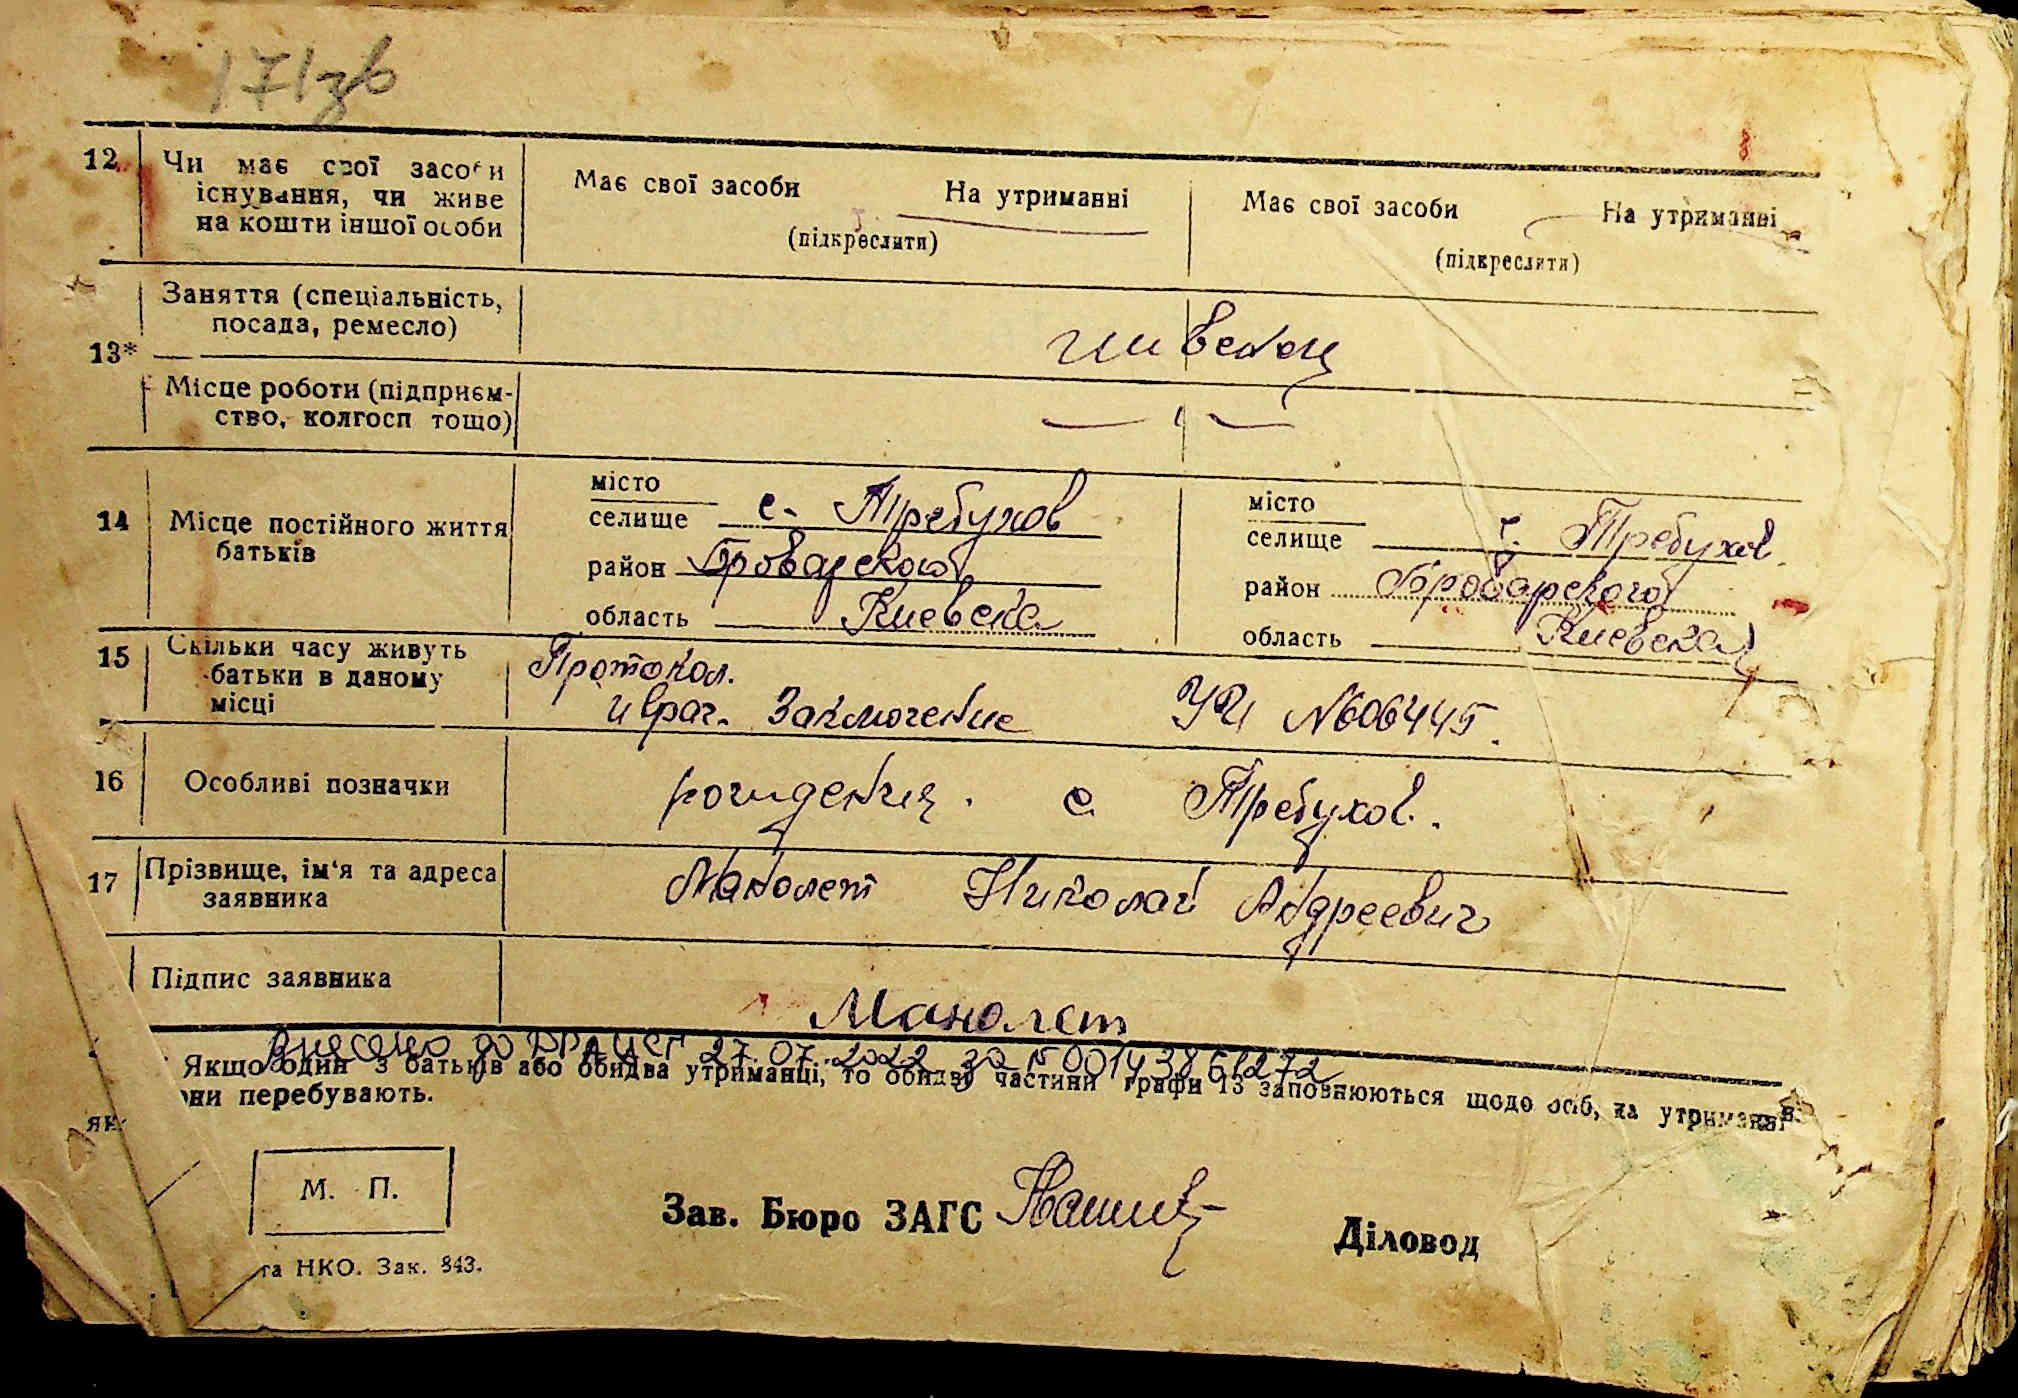 171зв
12 Чи має свої засоби Має свої засоби На утриманні Має свої засоби На утриманні
існування, чи живе
на кошти іншої особи (підкреслити) (підкреслити)
13* Заняття (спеціальність,
посада, ремесло)
Місце роботи (підприєм-
ство, колгосп тощо) — " —
14 Місце постійного життя
батьків
місто місто
селище с. Требухов селище с. Требухов
район Броварского район Броварского
область Киевска область Киевская
15 Скільки часу живуть
батьки в даному
місці
Протокол.
и врач. Заключение УРИ №606445.
16 Особливі позначки рождения. с Требухов.
17 Прізвище, ім'я та адреса
заявника
Манолет Николай Андреевич
Підпис заявника Манолет
Внесено до ДРАЦСГ 27.07.2022 за № 00143861272
Якщо один з батьків або обидва утриманці, то обидві частини графи 13 заповнюються щодо осіб, на утриманні
они перебувають.
як
М. П.
Зав. Бюро ЗАГС Діловод
та НКО. Зак. 843.